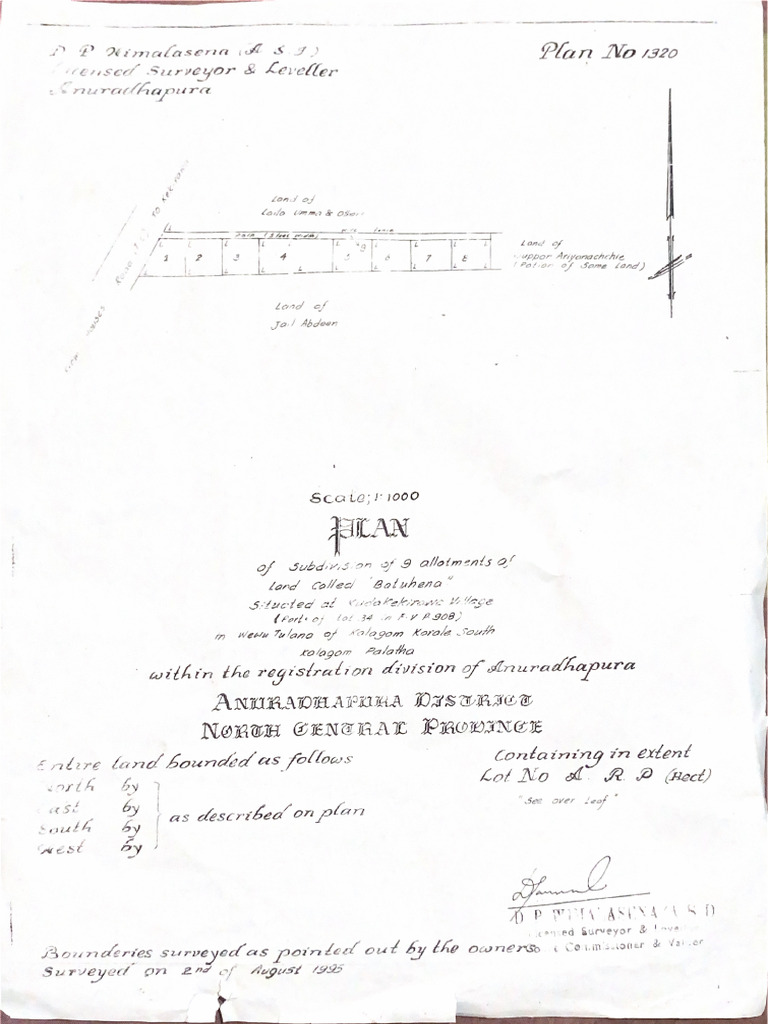 D P Wimalasena (A S I)
Licensed Surveyor & Leveller
Anuradhapura
Plan No 1320
Land of
Laila Umma & 
Path (
1
2
3
4
5
9
6
7
8
Land of
Ariyanachchie
(Potion of Same Land)
Road
To Kekirawa
Land of
Jail Abdeen
Scale; 1:1000
PLAN
of Subdivision of 9 allotments of
Land Called "Batuhena"
Situated at Kudakekirawa Village
(Part of Lot 34 in F V P 908)
in Wewu Tulana of Kalagam Korale South
Kalagam Palatha
within the registration division of Anuradhapura
ANURADHAPURA DISTRICT
NORTH CENTRAL PROVINCE
Entire land bounded as follows
North by
East by
South by
West by
as described on plan
Containing in extent
Lot No A. R. P (Hect)
"See over Leaf"
D. P. WIMALASENA
Licensed Surveyor &
Commissioner & Valuer
Bounderies surveyed as pointed out by the owners
Surveyed on 2nd of August 1995